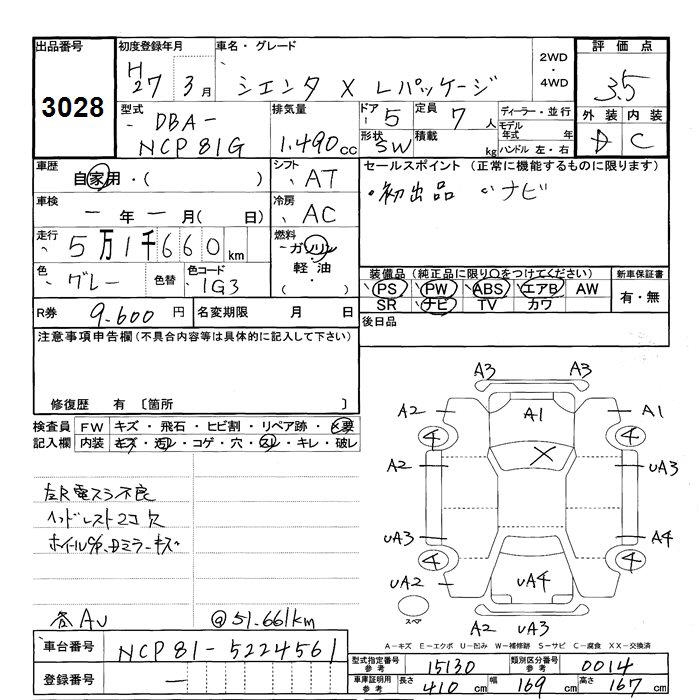 出品番号 初度登録年月 車名・グレード 2WD・4WD 評価点
3028 H27 3月 シエンタ X Lパッケージ 3.5
型式 排気量 ドア 5 定員 7人 ディーラー・並行 外装 内装
DBA- NCP81G 1.490cc 形状 SW 積載 kg モデル年式 年 ハンドル 左・右 D C
車歴 自家用・( ) シフト AT セールスポイント (正常に機能するものに限ります)
車検 一年一月( 日) 冷房 AC ・初出品 ・ナビ
走行 5万1千660km 燃料 ガソリン・軽油・( )
色 グレー 色替 色コード 1G3 装備品 (純正品に限り○をつけてください) 新車保証書
PS PW ABS エアB AW 有・無
R券 9.600円 名変期限 月 日 SR ナビ TV カワ
注意事項申告欄 (不具合内容等は具体的に記入して下さい) 後日品
修復歴 有 〔箇所 〕
検査員記入欄 FW キズ・飛石・ヒビ割・リペア跡・X要
内装 キズ・汚レ・コゲ・穴・スレ・キレ・破レ
A3 A3
A2 A1 A1
4 4
A2 X uA3
左R電スラ不良
ヘッドレスト2コ欠
uA3 A4
4 4
uA2 uA4 uA2
スペア
A2 uA3
@51.661km
A-キズ E-エクボ U-凹み W-補修跡 S-サビ C-腐食 XX-交換済
車台番号 NCP81-5224561
型式指定番号 参考 15130 類別区分番号 参考 0014
登録番号 ー
車庫証明用 参考 長さ 410cm 幅 169cm 高さ 167cm